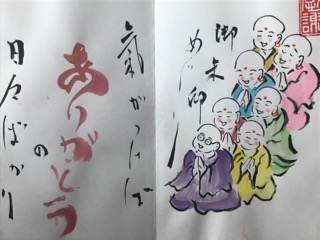 感謝
御朱印
めぐり
氣がつけば
ありがとう
の
日々ばかり